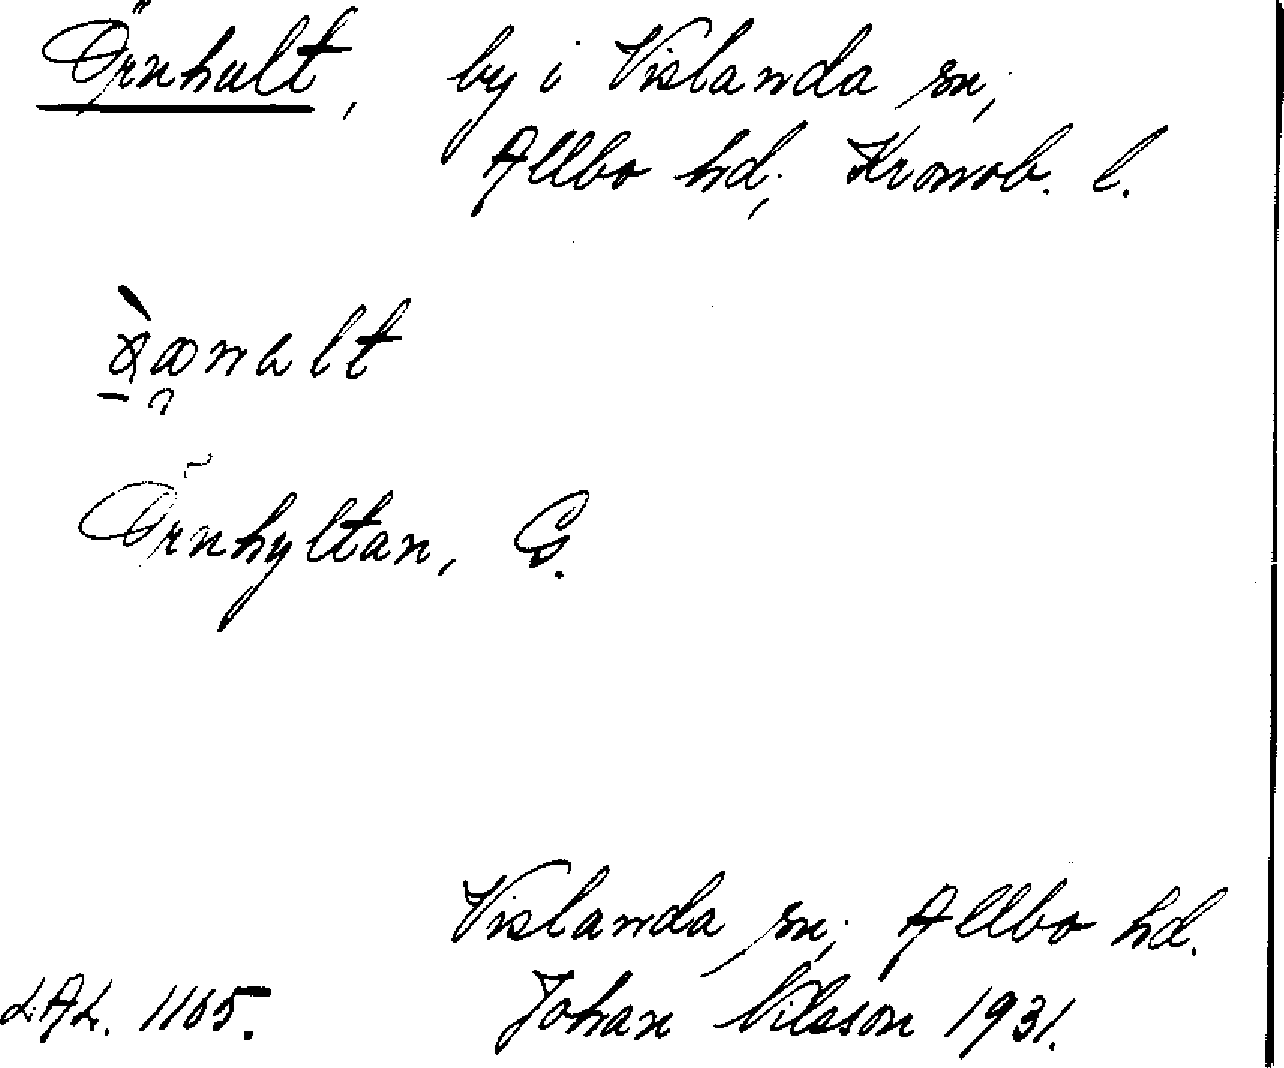 Örnhult, by i Vislanda sn,
Allbo hd, Kronob. l.
Örnhyltan, G.
Vislanda sn, Allbo hd.
LAL. 1165. Johan Nilsson 1931.